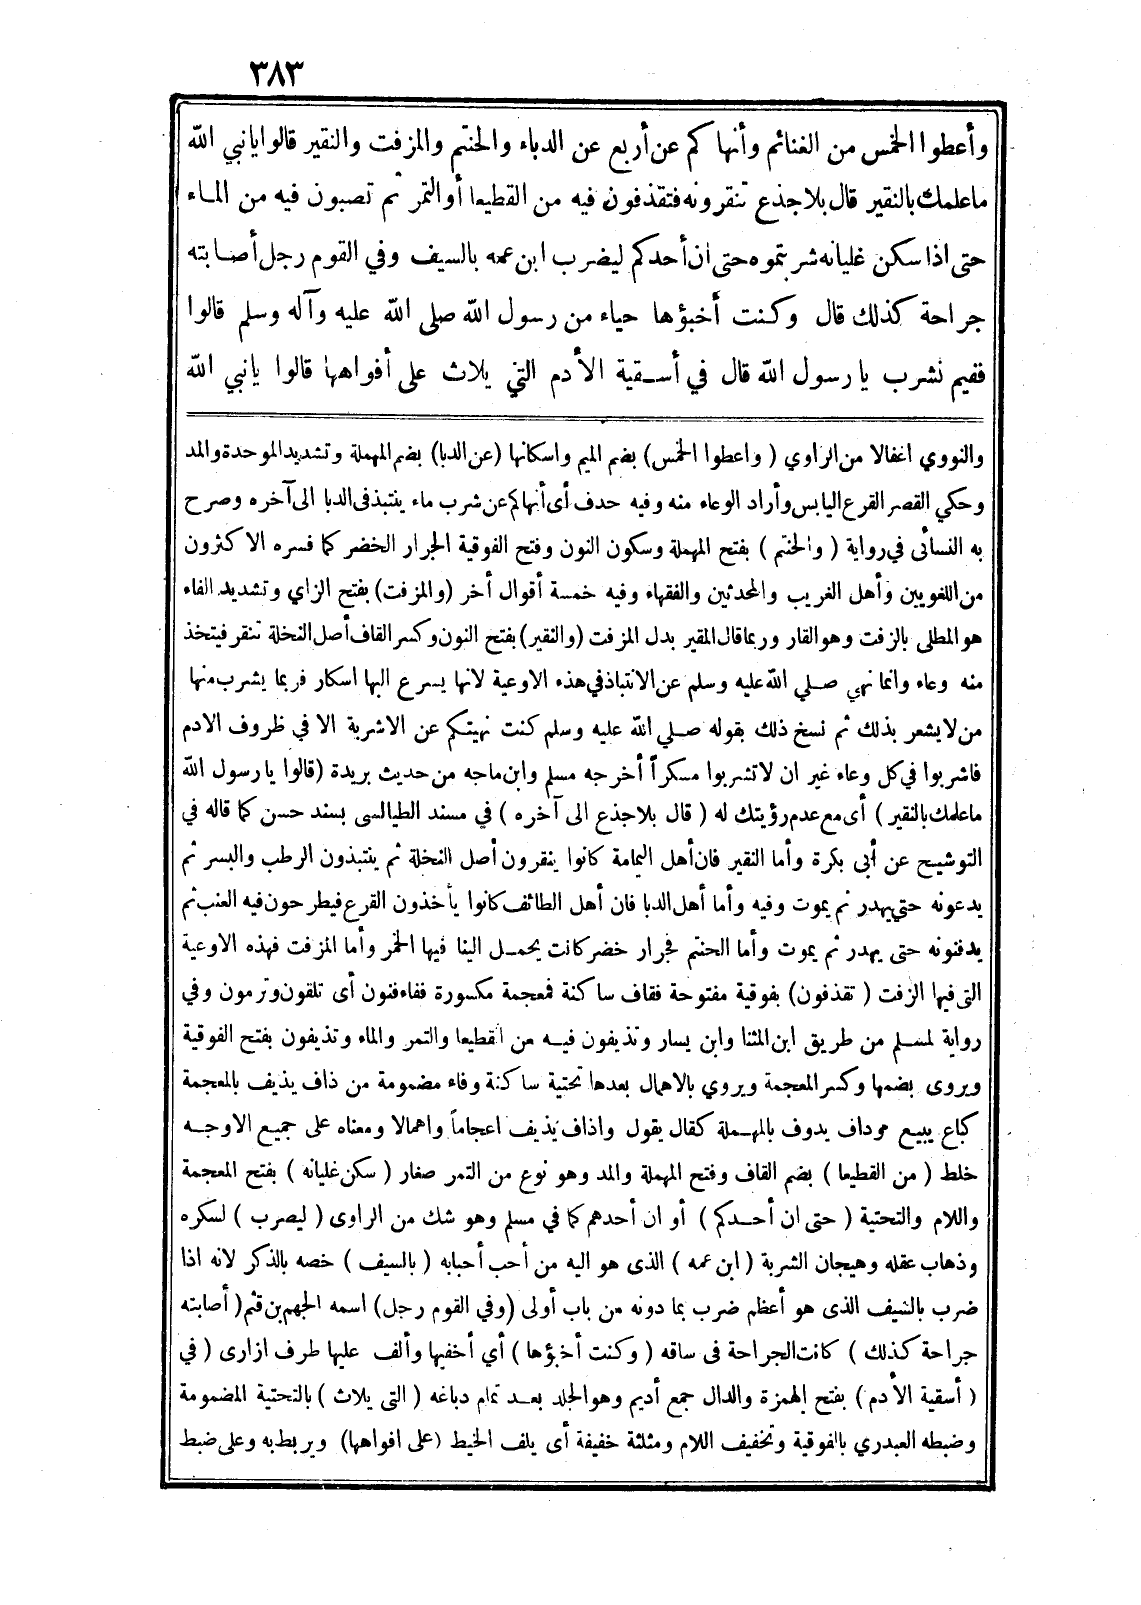 ٣٨٣
وأعطوا الخمس من الغنائم وأنهاكم عن أربع عن الدباء والحنتم والمزفت والنقير قالوا يا نبي الله
ما علمك بالنقير قال بلا جذع تنقرونه فتقذفون فيه من القطيعا أو التمر ثم تصبون فيه من الماء
حتى اذا سكن غليانه شربتموه حتى ان أحدكم ليضرب ابن عمه بالسيف وفي القوم رجل أصابته
جراحة كذلك قال وكنت أخبؤها حياء من رسول الله صلى الله عليه وآله وسلم قالوا
ففيم نشرب يا رسول الله قال في أسقية الأدم التي يلاث على أفواهها قالوا يا نبي الله
والنووي اغفالا من الراوي ( واعطوا الخمس) بضم الميم واسكانها (عن الدبا) بضم المهملة وتشديد الموحدة والمد
وحكي القصر القرع اليابس وأراد الوعاء منه وفيه حدف أى أنهاكم عن شرب ماء ينتبذ فى الدبا الى آخره وصرح
به النسائى في رواية ( والحنتم ) بفتح المهملة وسكون النون وفتح الفوقية الجرار الخضر كما فسره الاكثرون
من اللغويين وأهل الغريب والمحدثين والفقهاء وفيه خمسة أقوال أخر (والمزفت) بفتح الزاي وتشديد الفاء
هو المطلى بالزفت وهو القار وربما قال المقير بدل المزفت (والنقير) بفتح النون وكسر القاف أصل النخلة تنقر فيتخذ
منه وعاء وانما نهي صلي الله عليه وسلم عن الانتباذ في هذه الاوعية لانها يسرع اليها اسكار فربما يشرب منها
من لا يشعر بذلك ثم نسخ ذلك بقوله صلي الله عليه وسلم كنت نهيتكم عن الاشربة الا في ظروف الادم
فاشربوا في كل وعاء غير ان لا تشربوا مسكراً أخرجه مسلم وابن ماجه من حديث بريدة (قالوا يا رسول الله
ما علمك بالنقير ) أى مع عدم رؤيتك له ( قال بلا جذع الى آخره ) في مسند الطيالسى بسند حسن كما قاله في
التوشيح عن أبى بكرة وأما النقير فان أهل اليمامة كانوا ينقرون أصل النخلة ثم ينتبذون الرطب والبسر ثم
يدعونه حتى يهدر ثم يموت وفيه وأما أهل الدبا فان أهل الطائف كانوا يأخذون القرع فيطرحون فيه العنب ثم
يدفنونه حتى يهدر ثم يموت وأما الحنتم فجرار خضر كانت يحمل الينا فيها الخمر وأما المزفت فهذه الاوعية
التى فيها الزفت ( تقذفون) بفوقية مفتوحة فقاف ساكنة فمعجمة مكسورة ففاء فنون أى تلقون وترمون وفي
رواية لمسلم من طريق ابن المثنا وابن يسار وتذيفون فيه من القطيعا والتمر والماء وتذيفون بفتح الفوقية
ويروى بضمها وكسر المعجمة ويروي بالاهمال بعدها تحتية ساكنة وفاء مضمومة من ذاف يذيف بالمعجمة
كباع يبيع وداف يدوف بالمهملة كقال يقول واذاف يذيف اعجاماً واهمالا ومعناه على جميع الاوجه
خلط ( من القطيعا ) بضم القاف وفتح المهملة والمد وهو نوع من التمر صغار ( سكن غليانه ) بفتح المعجمة
واللام والتحتية ( حتى ان أحدكم ) أو ان أحدهم كما في مسلم وهو شك من الراوى ( ليصرب ) لسكره
وذهاب عقله وهيجان الشربة ( ابن عمه ) الذى هو اليه من أحب أحبابه ( بالسيف ) خصه بالذكر لانه اذا
ضرب بالسيف الذى هو أعظم ضرب بما دونه من باب أولى (وفي القوم رجل) اسمه الجهم بن قثم( أصابته
جراحة كذلك ) كانت الجراحة فى ساقه ( وكنت أخبؤها ) أي أخفيها وألف عليها طرف ازارى ( في
( أسقية الأدم ) بفتح الهمزة والدال جمع أديم وهو الجلد بعد تمام دباغه ( التى يلاث ) بالتحتية المضمومة
وضبطه العبدري بالفوقية وتخفيف اللام ومثلثة خفيفة أى يلف الخيط (على افواهها) ويربط به وعلى ضبط